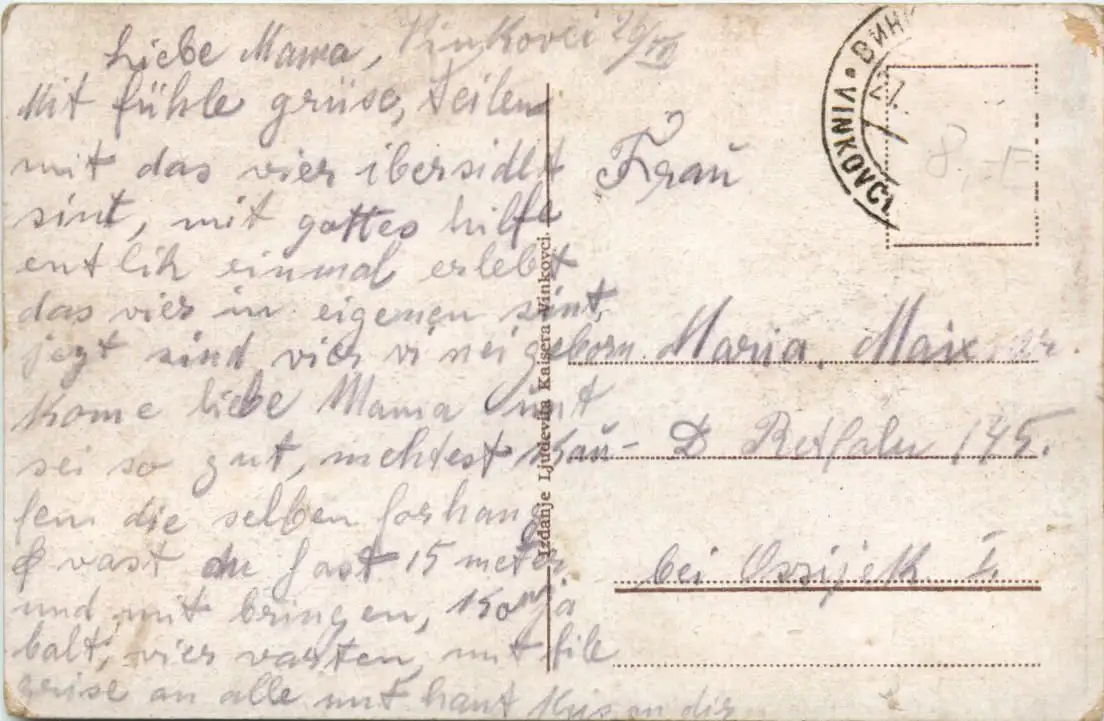 Liebe Mama, Vinkovci 26/VII
Mit fühle grüse, teilen
mit das vier ibersidlt
sint, mit gottes hilfe
entlih einmal erlebt
das vier in eigenen sint,
jezt sind vier vi nei geborn.
Kome liebe Mama unt
sei so gut, mehtest Kau-
fen die selben forhang
vast du hast 15 meter
und mit bringen, Kom ja
balt, vier varten, mit file
grise an alle unt hant Kus an dir
Izdanje Ljudevita Kaisera Vinkovci.
ВИНК
VINKOVCI
21.
8,-E
Frau
Maria. Maix
D Retfalu 145.
bei Ossijek I.